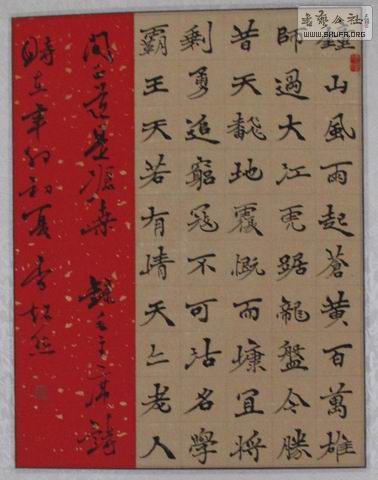 书艺公社
WWW.SHUFA.ORG
鐘山風雨起蒼黃百萬雄
師過大江虎踞龍盤今勝
昔天翻地覆慨而慷宜將
剩勇追窮寇不可沽名學
霸王天若有情天亦老人
間正道是滄桑 錄毛主席詩
時在辛卯初夏